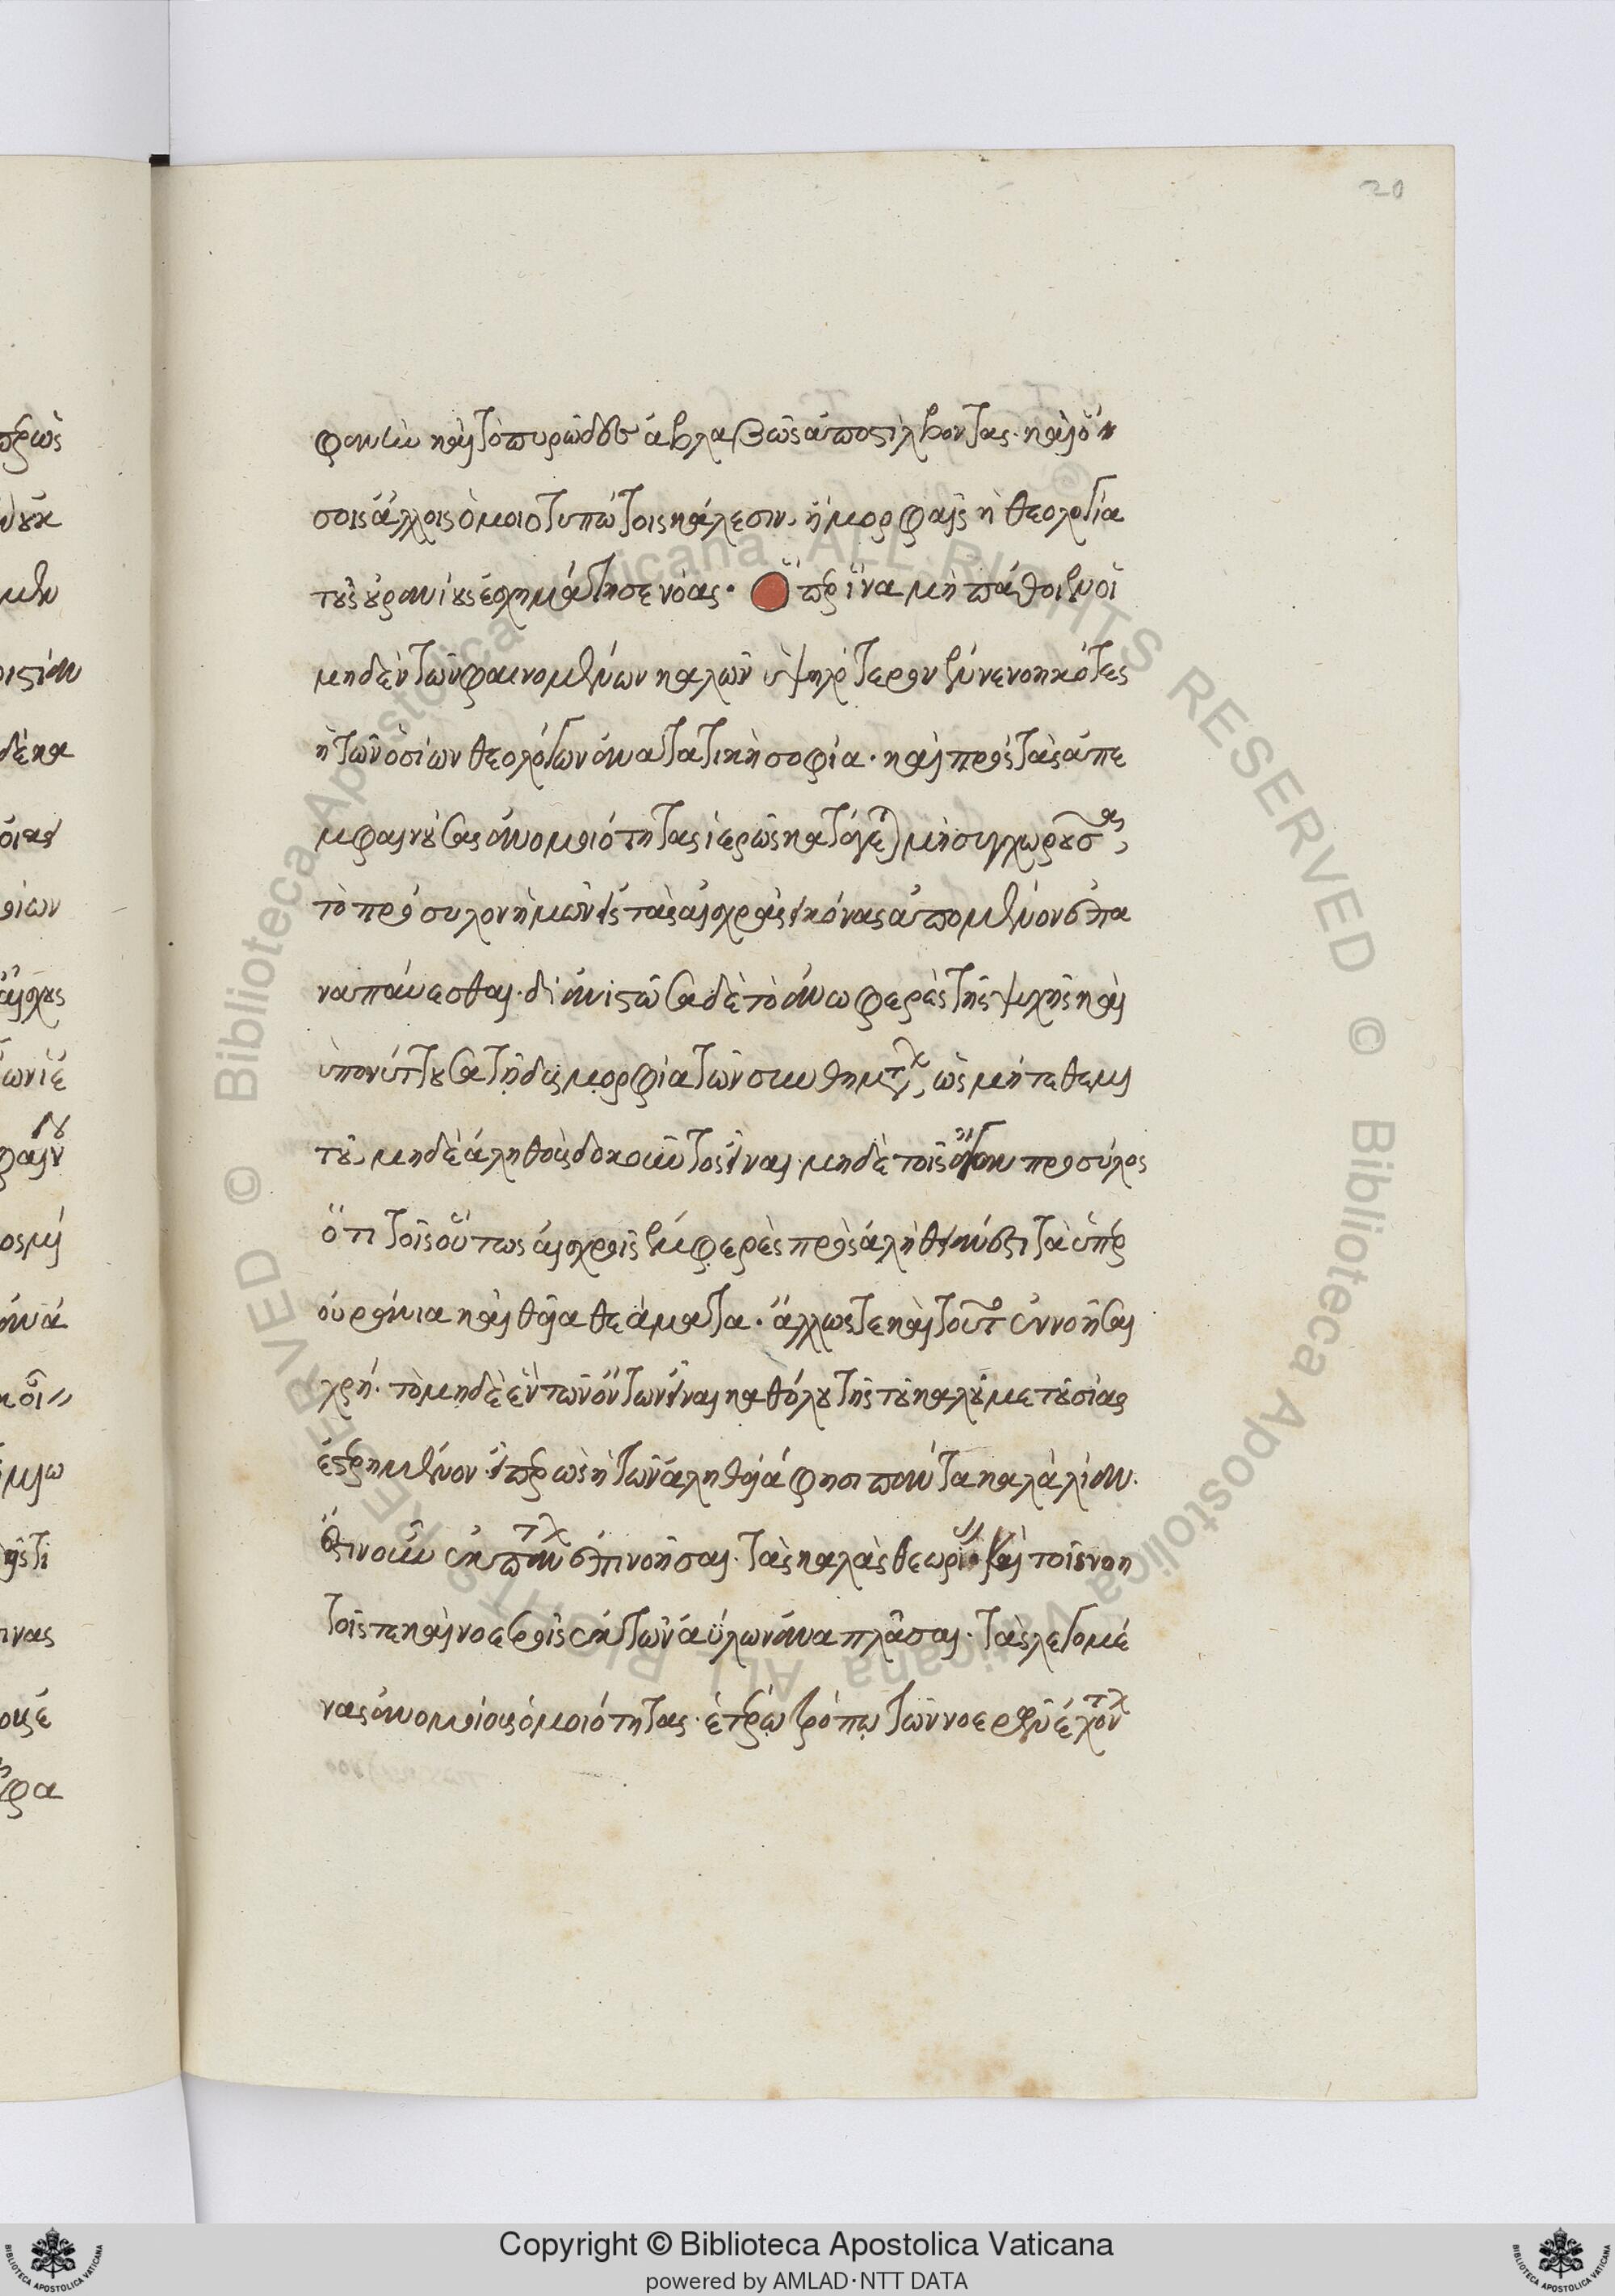 20
φανῶν καὶ τὸ πυρῶδες ἀβλαβῶς ἀποστίλβοντας. καὶ ὅ
σοις ἄλλοις ὁμοιοτυπώτοις κάλεσιν, ἢ μορφαῖς ἡ θεολογία
τοὺς οὐρανίους ἐσχημάτησε νόας. Ὅπερ ἵνα μὴ πάθοιεν οἱ
μηδὲν τῶν φαινομένων καλῶν ὑψηλότερον ἐννενοηκότες
ἡ τῶν ὁσίων θεολόγων ἀναγαγικὴ σοφία. καὶ πρὸς τὰς ἀπε
μφαινούσας ἀνομοιότητας ἱερῶς κατάγεται μὴ συγχωροῦσα,
τὸ πρόσυλον ἡμῶν εἰς τὰς αἰσχρὰς εἰκόνας ἀπομένον ἐπα
ναπαύεσθαι. διανιστῶσα δὲ τὸ ἀνωφερὲς τῆς ψυχῆς καὶ
ὑπονύττουσα τῇ δυσμορφίᾳ τῶν συνθημάτων, ὡς μήτε θεμι
τοῦ, μηδὲ ἀληθοῦς δοκοῦντος εἶναι. μηδὲ τοῖς ἄγαν προσύλος
ὅτι τοῖς οὕτως αἰσχροῖς ἐμφερὲς πρὸς ἀλήθειάν ἐστι τὰ ὑπερ
ουράνια καὶ θεῖα θεάματα. ἄλλως τε καὶ τοῦτο ἐννοῆσαι
χρή. τὸ μηδὲ ἓν τῶν ὄντων εἶναι καθόλου τῆς τοῦ καλοῦ μετουσίας
ἐστερημένον. εἴπερ ὡς ἡ τῶν ἀληθεία φησι πάντα καλὰ λίαν.
ἔστιν οὖν ἐκ πάντων ἐπινοῆσαι. τὰς καλὰς θεωρίας καὶ τοῖς νοη
τοῖς τε καὶ νοεροῖς ἐκ τῶν ἀΰλων ἀναπλάσαι. τὰς λεγομέ
νας ἀνομοίους ὁμοιότητας. ἑτέρῳ τρόπῳ τῶν νοερῶν ἐχόντων
Copyright © Biblioteca Apostolica Vaticana
powered by AMLAD·NTT DATA